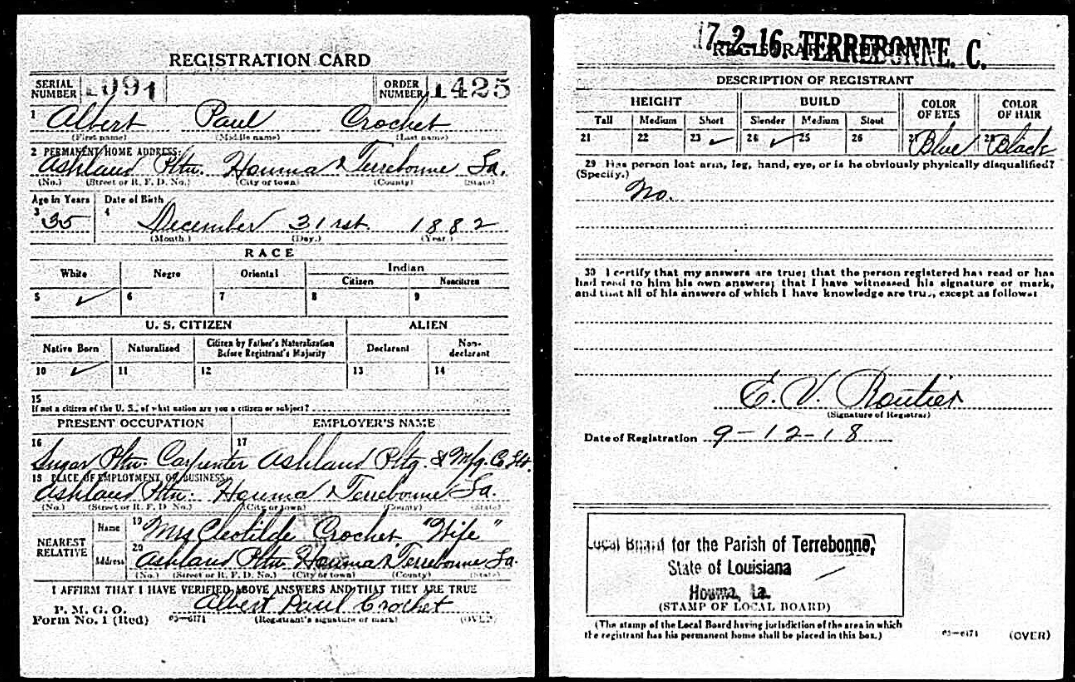 REGISTRATION CARD
SERIAL NUMBER 1091 ORDER NUMBER 1425
1 Albert Paul Crochet
(First name) (Middle name) (Last name)
2 PERMANENT HOME ADDRESS:
Ashland Pltn. Houma Terrebonne La.
(No.) (Street or R. F. D. No.) (City or town) (County) (State)
Age in Years Date of Birth
3 35 4 December 31rst. 1882
(Month.) (Day.) (Year.)
RACE
White Negro Oriental Indian
Citizen Noncitizen
5 ✓ 6 7 8 9
U. S. CITIZEN ALIEN
Native Born Naturalized Citizen by Father's Naturalization Before Registrant's Majority Declarant Non-declarant
10 ✓ 11 12 13 14
15
If not a citizen of the U. S., of what nation are you a citizen or subject?
PRESENT OCCUPATION EMPLOYER'S NAME
16 17
Sugar Pltn. Carpenter Ashland Pltg. & Mfg. Co Ltd.
18 PLACE OF EMPLOYMENT OR BUSINESS:
Ashland Pltn. Houma Terrebonne La.
(No.) (Street or R. F. D. No.) (City or town) (County) (State)
NEAREST RELATIVE
Name 19 Mrs Cleotilde Crochet "Wife"
Address 20 Ashland Pltn. Houma Terrebonne La.
(No.) (Street or R. F. D. No.) (City or town) (County) (State)
I AFFIRM THAT I HAVE VERIFIED ABOVE ANSWERS AND THAT THEY ARE TRUE
P. M. G. O.
Form No. 1 (Red) 03—6171 Albert Paul Crochet
(Registrant's signature or mark) (OVER)
17-2-16. TERREBONNE. C.
REGISTRAR'S REPORT
DESCRIPTION OF REGISTRANT
HEIGHT BUILD COLOR OF EYES COLOR OF HAIR
Tall Medium Short Slender Medium Stout
21 22 23 ✓ 24 ✓ 25 26 27 Blue 28 Black
29 Has person lost arm, leg, hand, eye, or is he obviously physically disqualified?
(Specify.)
No.
30 I certify that my answers are true; that the person registered has read or has
had read to him his own answers; that I have witnessed his signature or mark,
and that all of his answers of which I have knowledge are true, except as follows:
E. V. Routier
(Signature of Registrar)
Date of Registration 9-12-18
Local Board for the Parish of Terrebonne,
State of Louisiana
Houma, La.
(STAMP OF LOCAL BOARD)
(The stamp of the Local Board having jurisdiction of the area in which
the registrant has his permanent home shall be placed in this box.)
03—6171 (OVER)